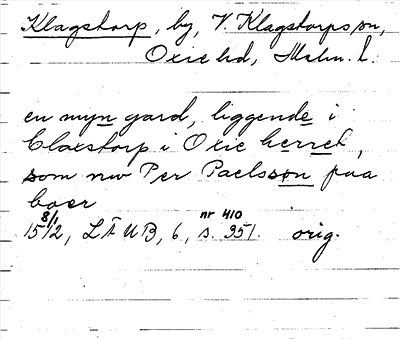 Klagstorp, by, V. Klagstorps sn,
Oxie hd, Malm. l.
en myn gard, liggende i
Claxstorp i Oxie herret,
som nw Per Paelsson paa
boer
8/1 nr 410
1512, LÄUB, 6, s. 351. orig.